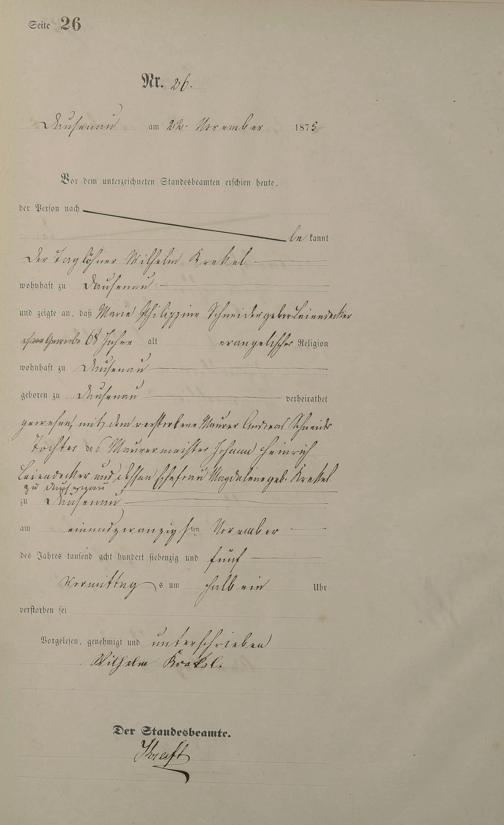 Seite 26
Nr. 26.
Dausenau am 22. November 1875
Vor dem unterzeichneten Standesbeamten erschien heute,
der Person nach
be kannt
der Taglöhner Wilhelm Krekel
wohnhaft zu Dausenau
und zeigte an, daß Marie Philippine Schneider geb. Leiendecker
ohne Gewerbe 68 Jahre alt evangelischer Religion
wohnhaft zu Dausenau
geboren zu Dausenau verheirathet
gewesen, mit dem verstorbene Maurer Andreas Schneider
Tochter des Maurermeister Johann Heinrich
Leiendecker und dessen Ehefrau Magdalene geb. Krekel
zu Dausenau
zu Dausenau
am einundzwanzigsten November
des Jahres tausend acht hundert siebenzig und fünf
Vormittags um halb ein Uhr
verstorben sei
Vorgelesen, genehmigt und unterschrieben
Wilhelm Krekel.
Der Standesbeamte.
Kraft